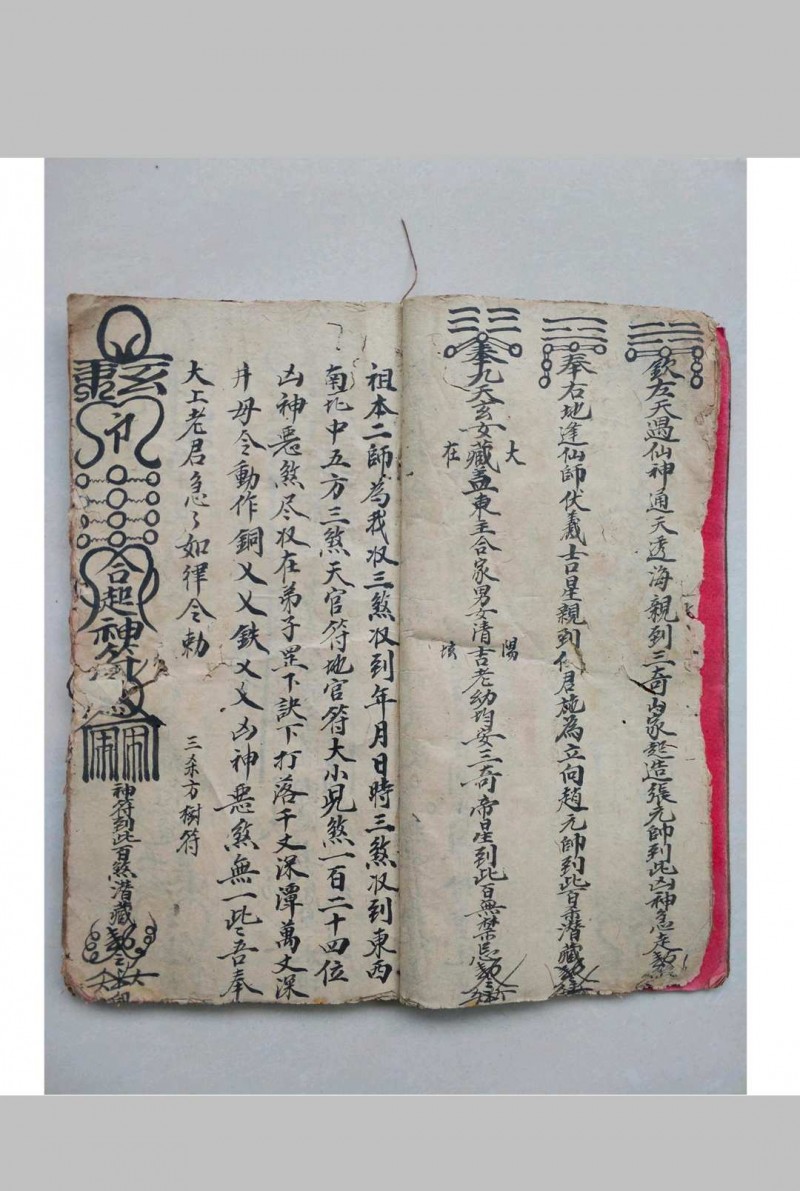 欽左天遇仙神通天透海親到三奇山家起造張元帥到此凶神急走
奉右地逢仙師伏羲吉星親到 君施為立向趙元帥到此百杀潜藏
奉九天玄女藏盖東主合家男女清吉老幼均安三奇帝星到此百無禁忌
大 陽
在 垓
祖本二師為我収三煞収到年月日時三煞収到東西
南北中五方三煞天官符地官符大小児煞一百二十四位
凶神惡煞尽収在弟子罡下訣下打落千丈深潭萬丈深
井毋令動作銅乂乂鉄乂乂凶神惡煞無一此〻吾奉
大上老君急〻如律令勅
三杀方樹符
玄
合起神符
神符到此百煞潜藏